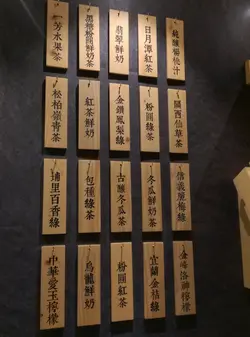 純釀楊桃汁
日月潭紅茶
翡翠鮮奶
黑糖粉圓鮮奶茶
一芳水果茶
關西仙草茶
粉圓綠茶
金鑽鳳梨綠
紅茶鮮奶
松柏嶺青茶
信義脆梅綠
冬瓜鮮奶茶
古釀冬瓜茶
包種綠茶
埔里百香綠
金峰洛神檸檬
宜蘭金桔綠
粉圓紅茶
烏龍鮮奶
中華愛玉檸檬